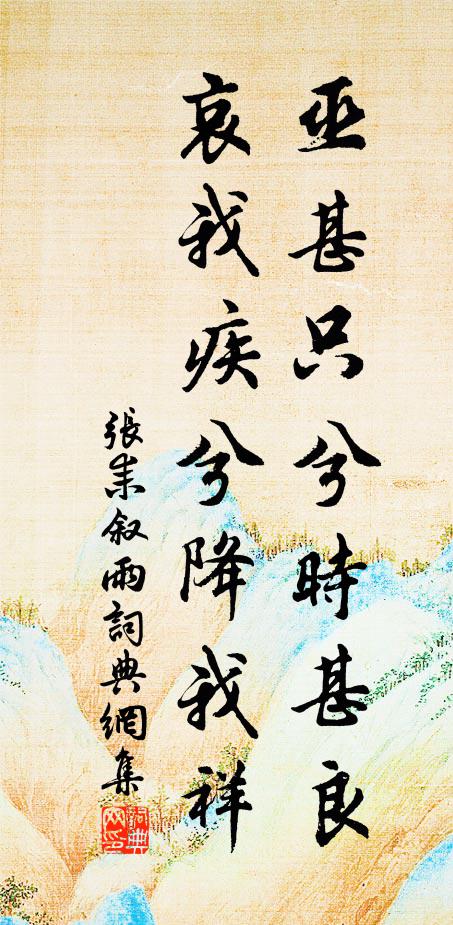 巫甚只兮時甚良
哀我疾兮降我祥
張耒叙雨詞典網集